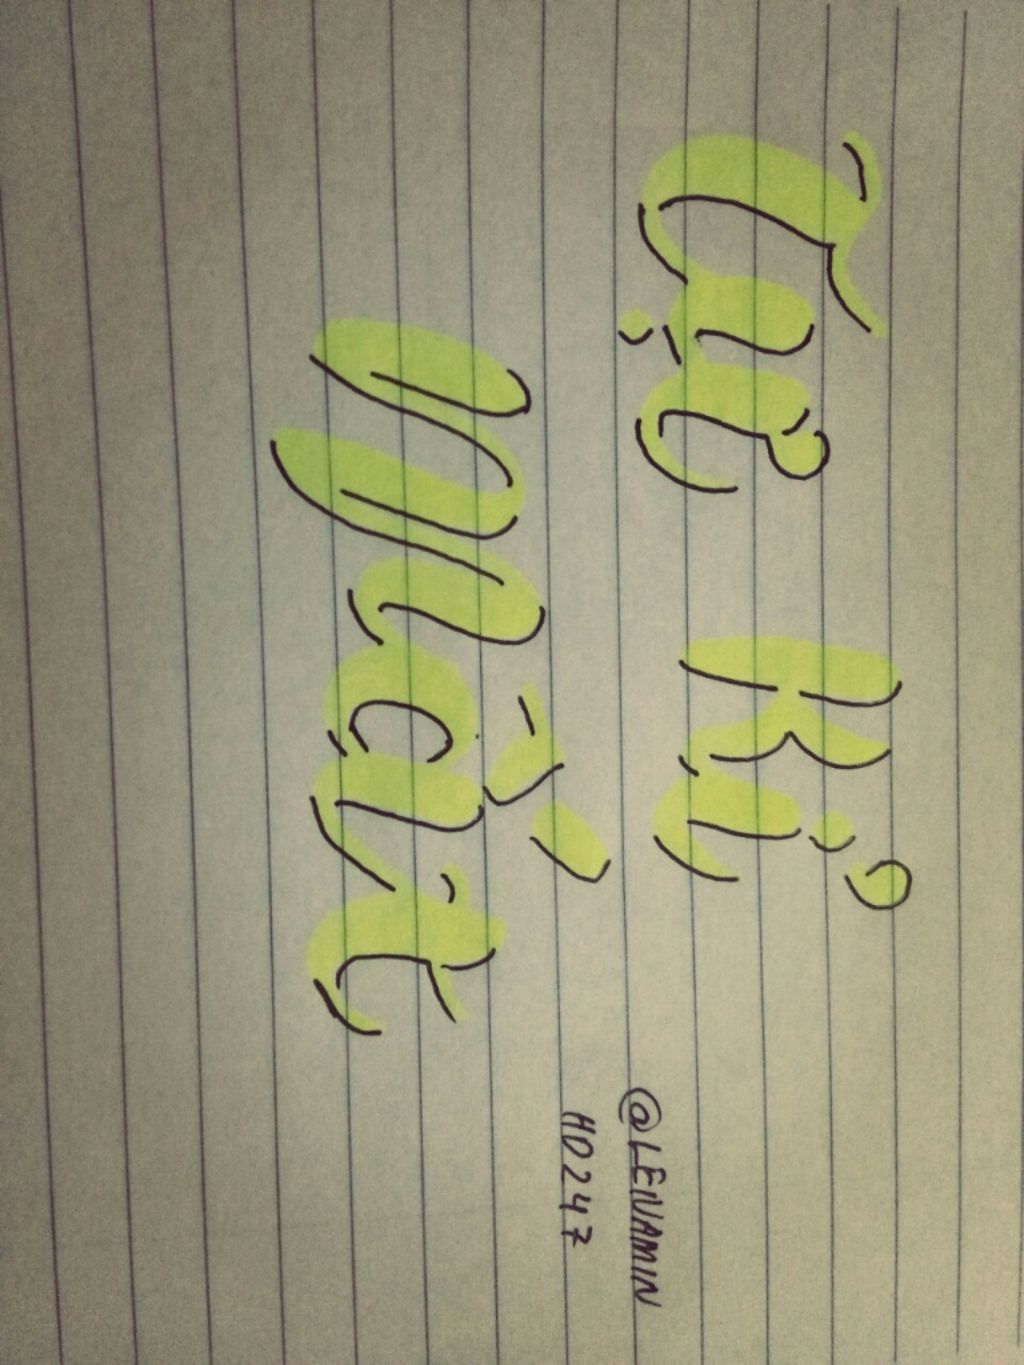 Tự Kỉ
Mất
@LENAMIN
HD247